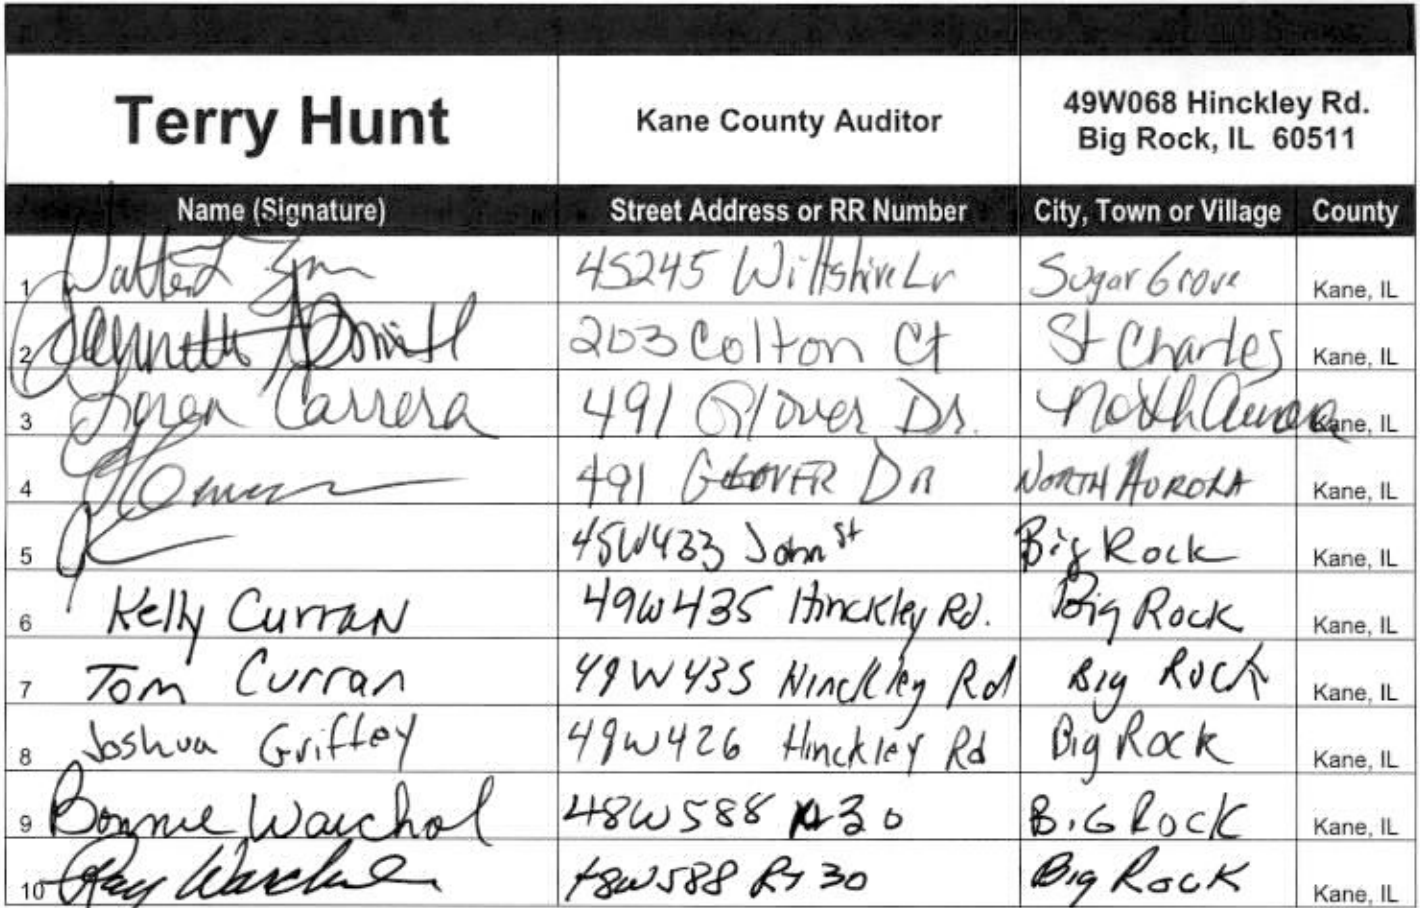 Terry Hunt Kane County Auditor 49W068 Hinckley Rd.
Big Rock, IL 60511
Name (Signature) Street Address or RR Number City, Town or Village County
1 45245 Wiltshire Ln Sugar Grove Kane, IL
2 203 Colton Ct St Charles Kane, IL
3 Loren Carrera 491 Glover Dr. North Aurora Kane, IL
4 491 GLOVER DR NORTH AURORA Kane, IL
5 45W433 John St Big Rock Kane, IL
6 Kelly Curran 49W435 Hinckley Rd. Big Rock Kane, IL
7 Tom Curran 49W435 Hinckley Rd Big Rock Kane, IL
8 Joshua Griffey 49W426 Hinckley Rd Big Rock Kane, IL
9 Bonnie Warchol 48W588 30 Big Rock Kane, IL
10 Ray Warchol 48W588 Rt 30 Big Rock Kane, IL